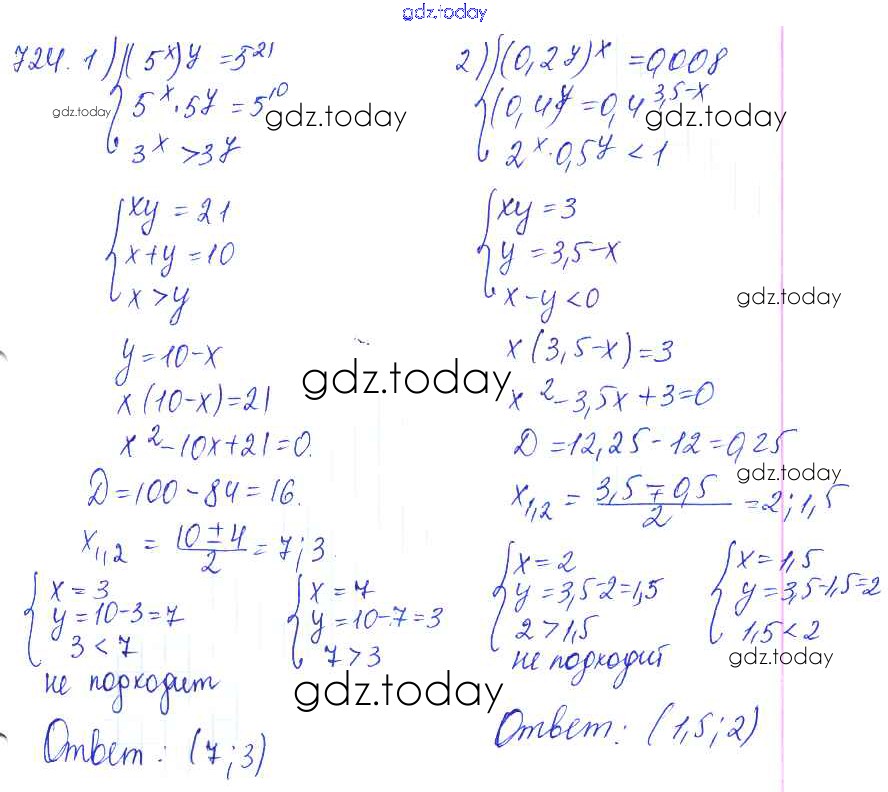 gdz.today
724. 1) { (5^x)^y = 5^21
gdz.today
5^x · 5^y = 5^10
gdz.today
3^x > 3^y
{ xy = 21
x + y = 10
x > y
y = 10 - x
gdz.today
x(10-x) = 21
x^2 - 10x + 21 = 0.
D = 100 - 84 = 16.
x_1,2 = (10 ± 4)/2 = 7; 3.
{ x = 3
y = 10 - 3 = 7
3 < 7
не подходит
{ x = 7
y = 10 - 7 = 3
7 > 3
gdz.today
Ответ: (7; 3)
2) { (0,2^y)^x = 0,008
(0,4)^y = 0,4^3,5-x
gdz.today
2^x · 0,5^y < 1
{ xy = 3
y = 3,5 - x
x - y < 0
gdz.today
x(3,5 - x) = 3
x^2 - 3,5x + 3 = 0
D = 12,25 - 12 = 0,25
gdz.today
x_1,2 = (3,5 ∓ 0,5)/2 = 2; 1,5
{ x = 2
y = 3,5-2 = 1,5
2 > 1,5
не подходит
{ x = 1,5
y = 3,5-1,5 = 2
1,5 < 2
gdz.today
Ответ: (1,5; 2)